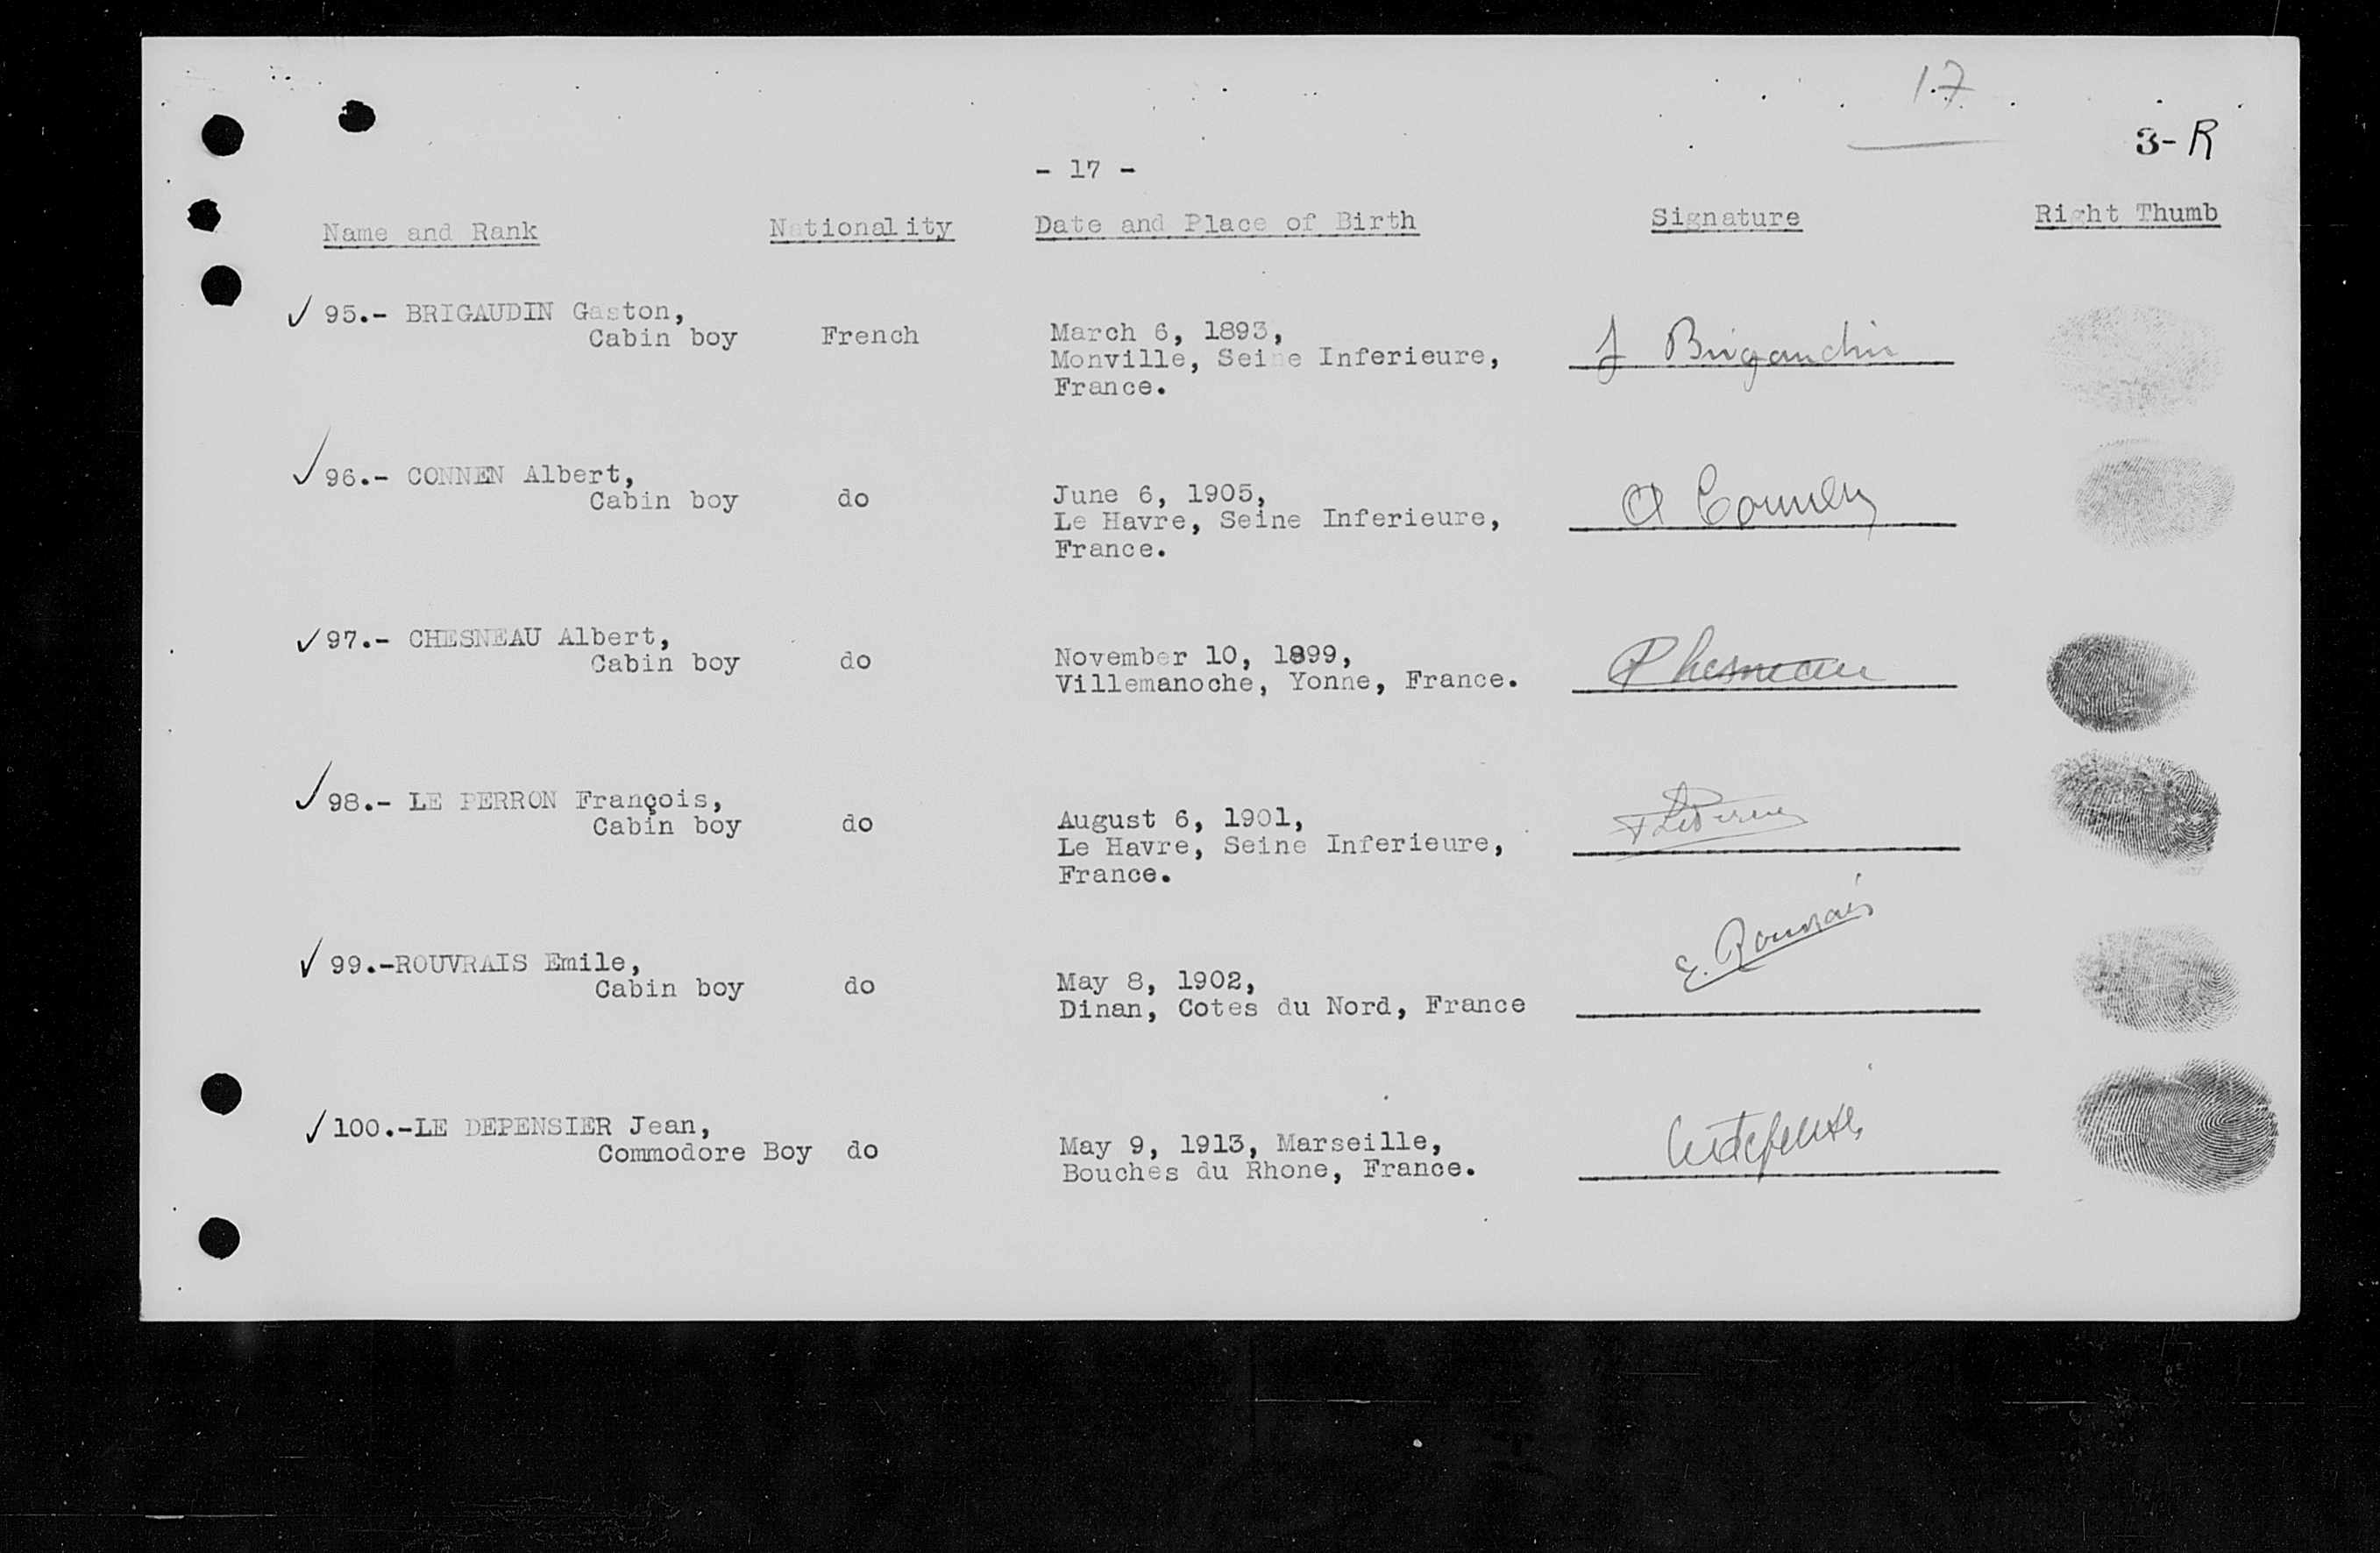 17
3-R
- 17 -
Name and Rank Nationality Date and Place of Birth Signature Right Thumb
✓ 95.- BRIGAUDIN Gaston,
Cabin boy French March 6, 1893,
Monville, Seine Inferieure,
France.
Brigaudin
✓ 96.- CONNEN Albert,
Cabin boy do June 6, 1905,
Le Havre, Seine Inferieure,
France.
A Connen
✓ 97.- CHESNEAU Albert,
Cabin boy do November 10, 1899,
Villemanoche, Yonne, France.
Chesneau
✓ 98.- LE PERRON François,
Cabin boy do August 6, 1901,
Le Havre, Seine Inferieure,
France.
✓ 99.-ROUVRAIS Emile,
Cabin boy do May 8, 1902,
Dinan, Cotes du Nord, France
E. Rouvrais
✓ 100.-LE DEPENSIER Jean,
Commodore Boy do May 9, 1913, Marseille,
Bouches du Rhone, France.